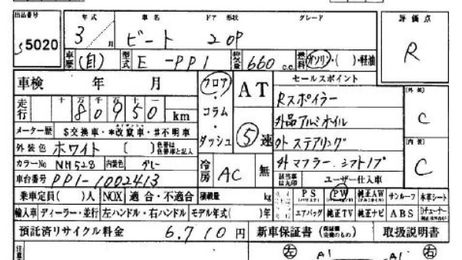 出品番号 年式 車名 ドア 形状 グレード 評価点
55020 3年 ビート 2 OP R
車歴 (自) 型式 E-PP1 排気量 660cc 燃料 ガソリン・( )・軽油
車検 年 月 フロア・コラム・ダッシュ AT セールスポイント
走行 十万 万 千 百 十 80950 km Rスポイラー 外装 C
メーター歴 $交換車・*改ざん車・#不明車 5速 外品アルミホイル
外装色 ホワイト 色替車の元色と色No. 外ステアリング 内装 C
カラーNo NH528 内装色 グレー 冷房 AC 無 外マフラー、シフトノブ
車台番号 PP1-1002413 ユーザー仕入車
乗車定員( )人 NOX 適合・不適合 積載量 kg PS PW 純正AW サンルーフ 本革シート
輸入車 ディーラー・並行 左ハンドル・右ハンドル モデル年式( ) エアバッグ 純正TV 純正ナビ ABS
預託済リサイクル料金 6,710円 新車保証書 取扱説明書
左 右
A1 A1